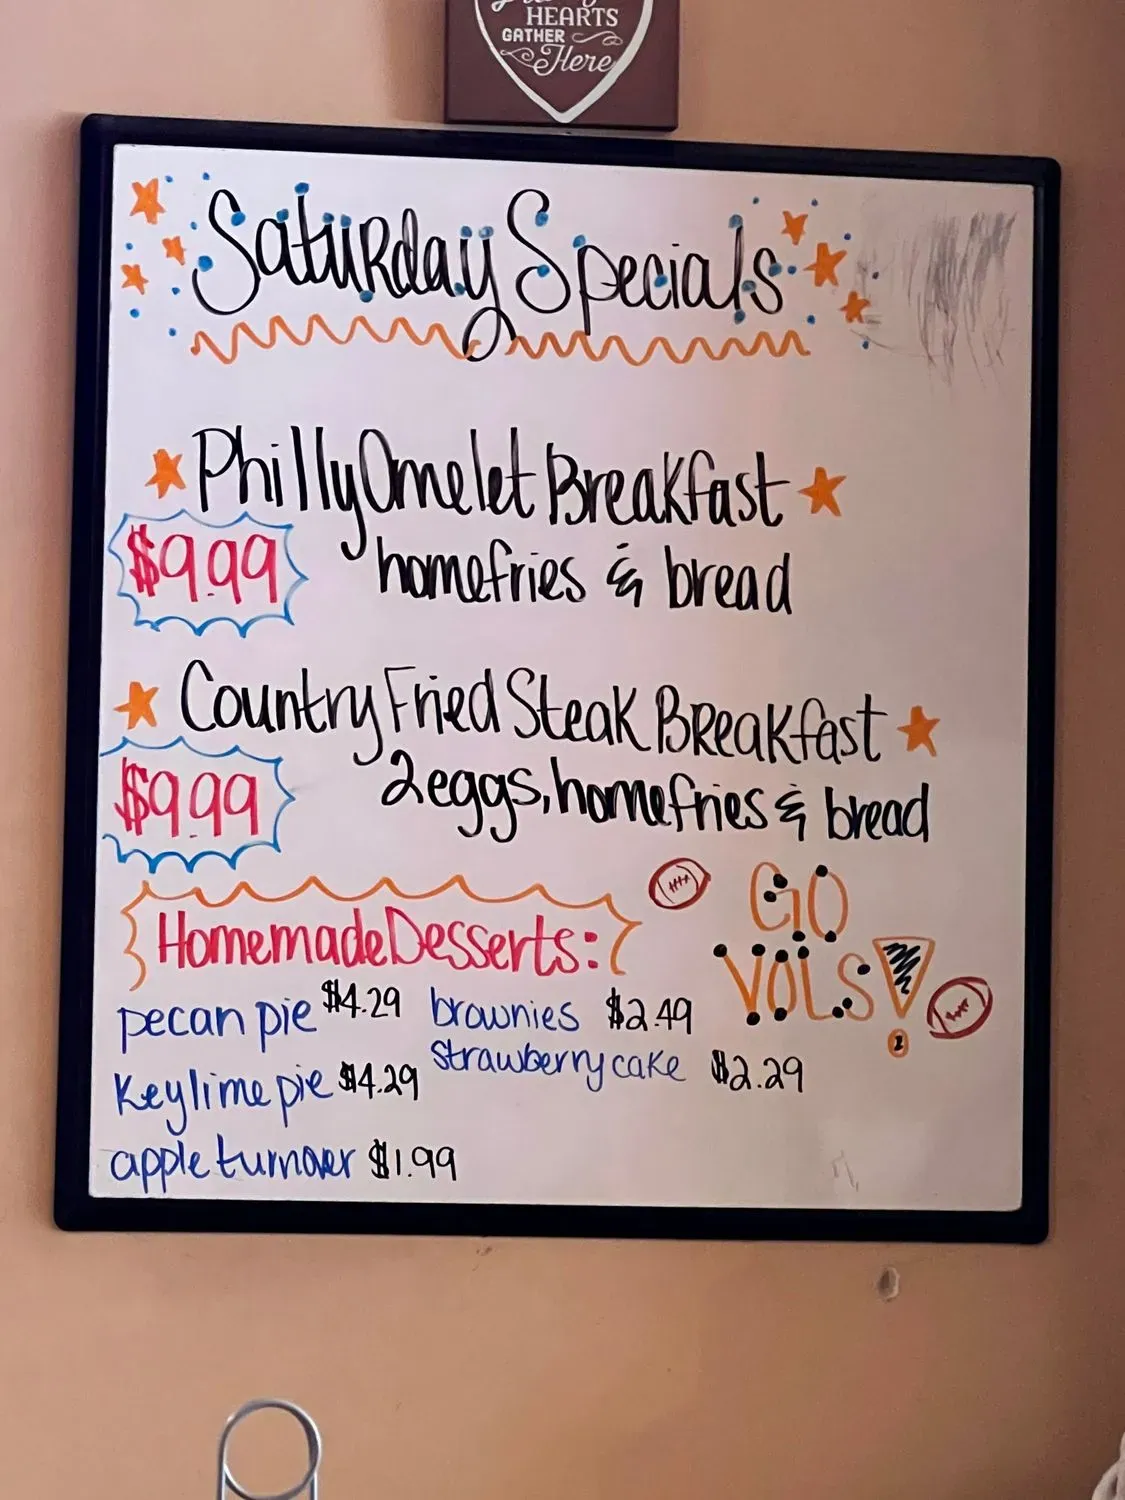 HEARTS
GATHER
Here
Saturday Specials
Philly Omelet Breakfast
$9.99
homefries & bread
Country Fried Steak Breakfast
$9.99
2 eggs, homefries & bread
Homemade Desserts:
GO
VOLS!
pecan pie $4.29
brownies $2.49
Key lime pie $4.29
strawberry cake $2.29
apple turnover $1.99